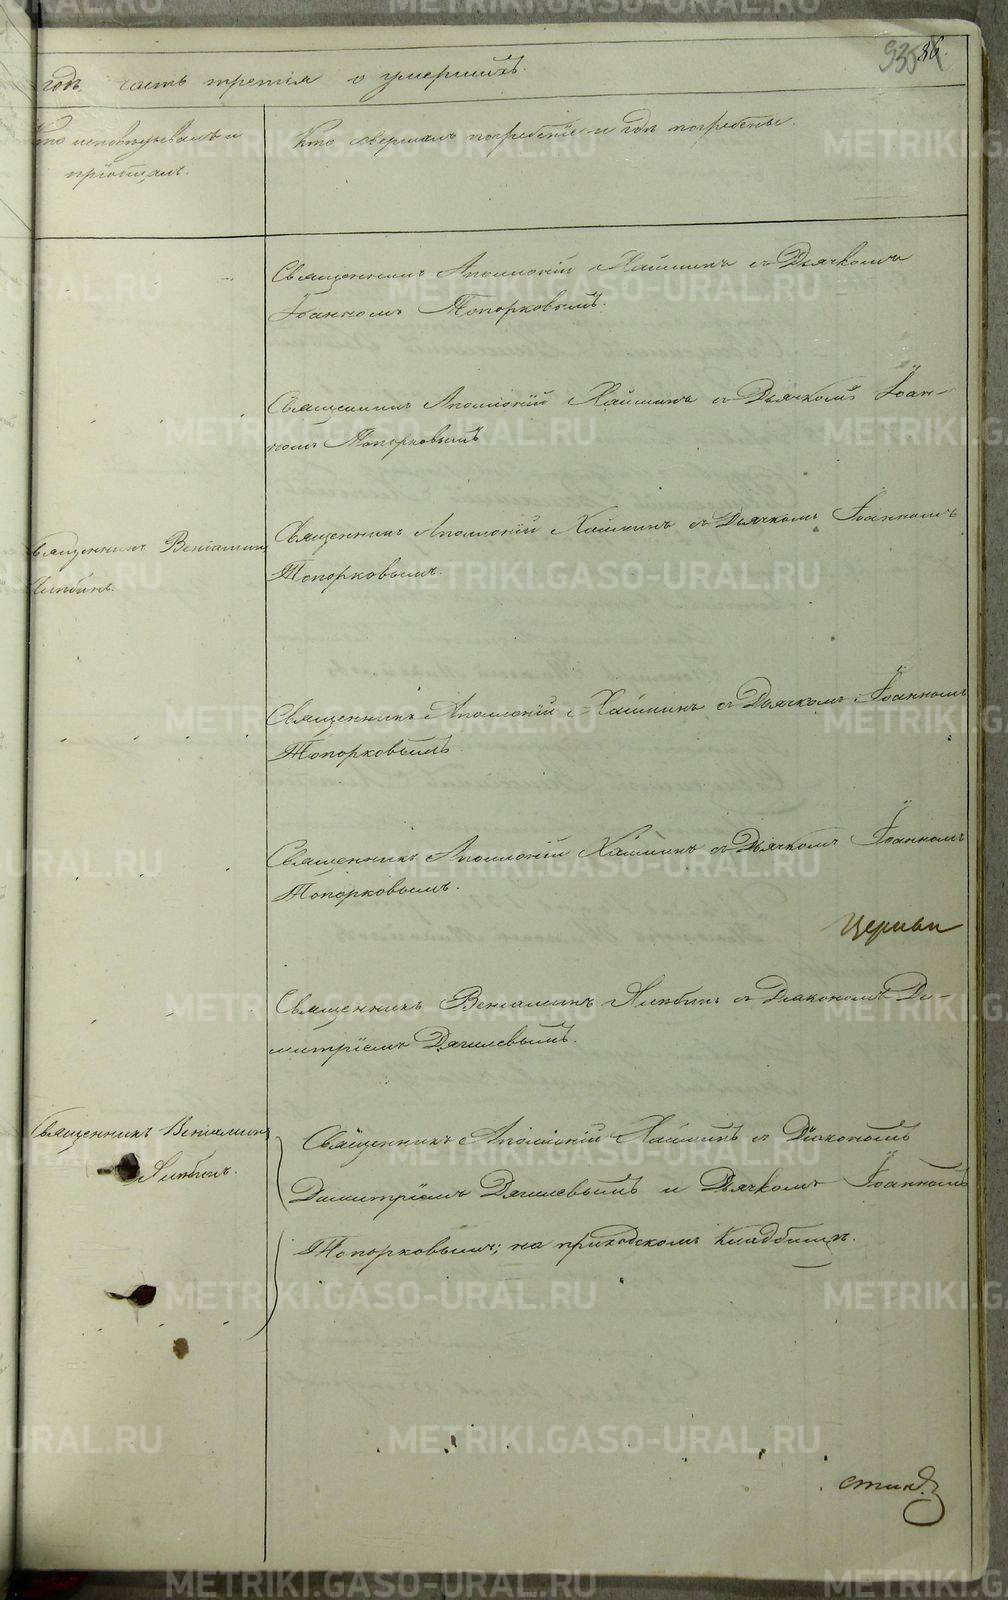 годъ, часть третія о умершихъ.
935 36.
Кто исповѣдывалъ и
пріобщалъ.
Кто совершалъ погребеніе и гдѣ погребены.
Священникъ Аполлоній Хайминъ съ Дьячкомъ
Іоанномъ Топорковымъ.
Священникъ Аполлоній Хайминъ съ Дьячкомъ Іоан-
номъ Топорковымъ
Священникъ Веніаминъ
Священникъ Аполлоній Хайминъ съ Дьячкомъ Іоанномъ
Топорковымъ.
Священникъ Аполлоній Хайминъ съ Дьячкомъ Іоанномъ
Топорковымъ
Священникъ Аполлоній Хайминъ съ Дьячкомъ Іоанномъ
Топорковымъ.
Церкви
Священникъ Веніаминъ съ Діакономъ Ди-
митріемъ Дягилевымъ.
Священникъ Веніаминъ
Священникъ Аполлоній Хайминъ съ Діакономъ
Димитріемъ Дягилевымъ и Дьячкомъ Іоанномъ
Топорковымъ; на приходскомъ кладбищѣ.
METRIKI.GASO-URAL.RU